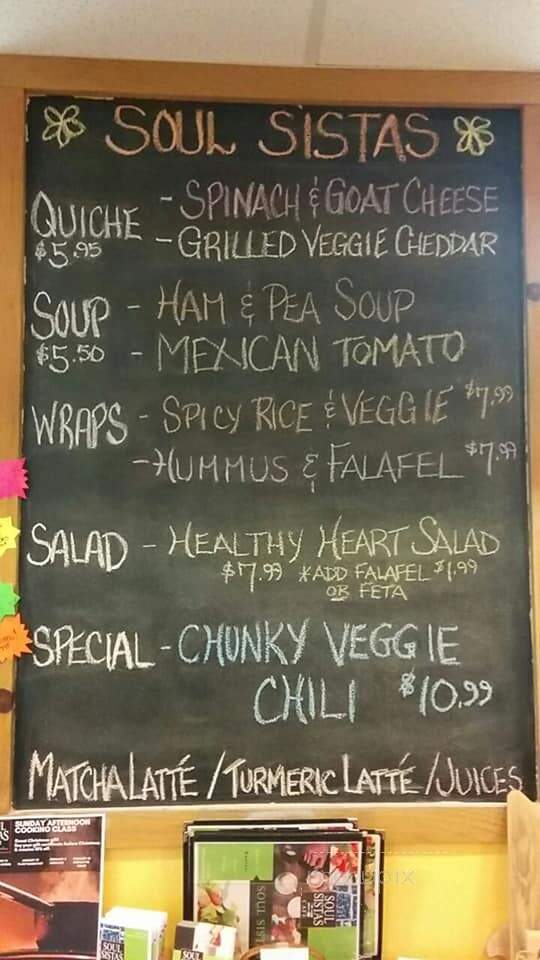 SOUL SISTAS
QUICHE - SPINACH & GOAT CHEESE
$5.95 - GRILLED VEGGIE CHEDDAR
SOUP - HAM & PEA SOUP
$5.50 - MEXICAN TOMATO
WRAPS - SPICY RICE & VEGGIE $7.99
- HUMMUS & FALAFEL $7.99
SALAD - HEALTHY HEART SALAD
$7.99 *ADD FALAFEL $1.99
OR FETA
SPECIAL - CHUNKY VEGGIE
CHILI $10.99
MATCHA LATTÉ / TURMERIC LATTÉ / JUICES
SUNDAY AFTERNOON
COOKING CLASS
SOUL
SISTAS
SOUL
SISTAS